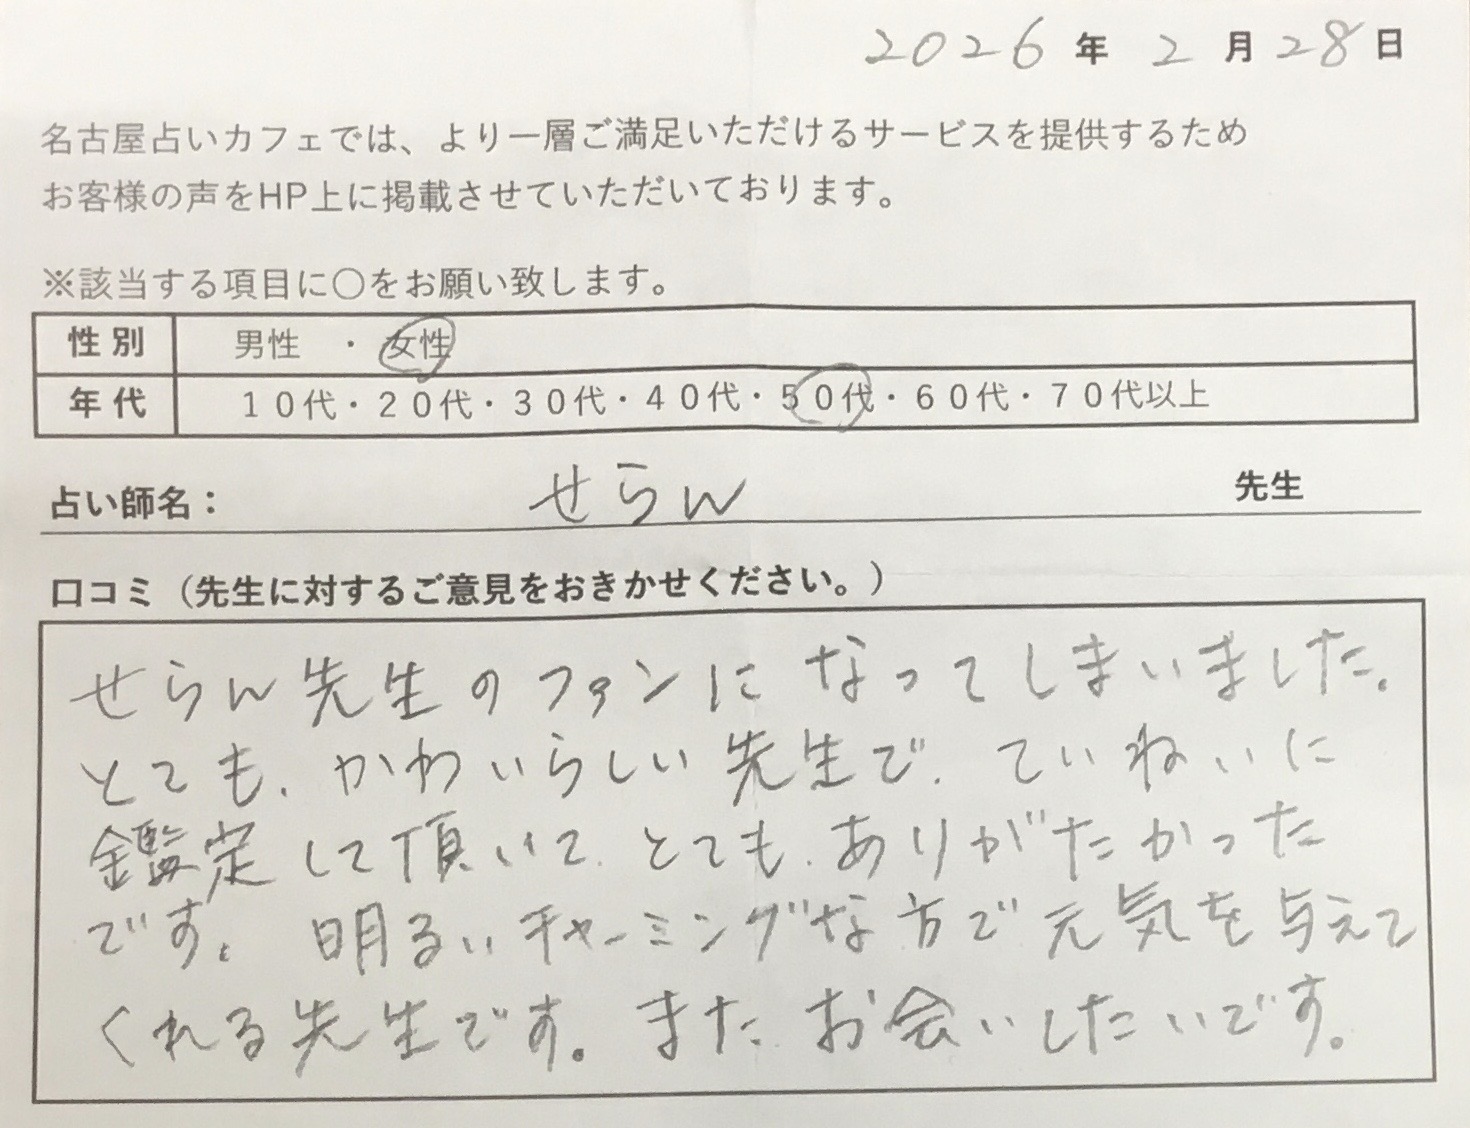 2026年2月28日
名古屋占いカフェでは、より一層ご満足いただけるサービスを提供するため
お客様の声をHP上に掲載させていただいております。
※該当する項目に〇をお願い致します。
性別 男性 ・ 女性
年代 10代・20代・30代・40代・50代・60代・70代以上
占い師名： せらん 先生
口コミ（先生に対するご意見をおきかせください。）
せらん先生のファンになってしまいました。
とても、かわいらしい先生で、ていねいに
鑑定して頂いて、とても、ありがたかった
です。明るいチャーミングな方で元気を与えて
くれる先生です。またお会いしたいです。